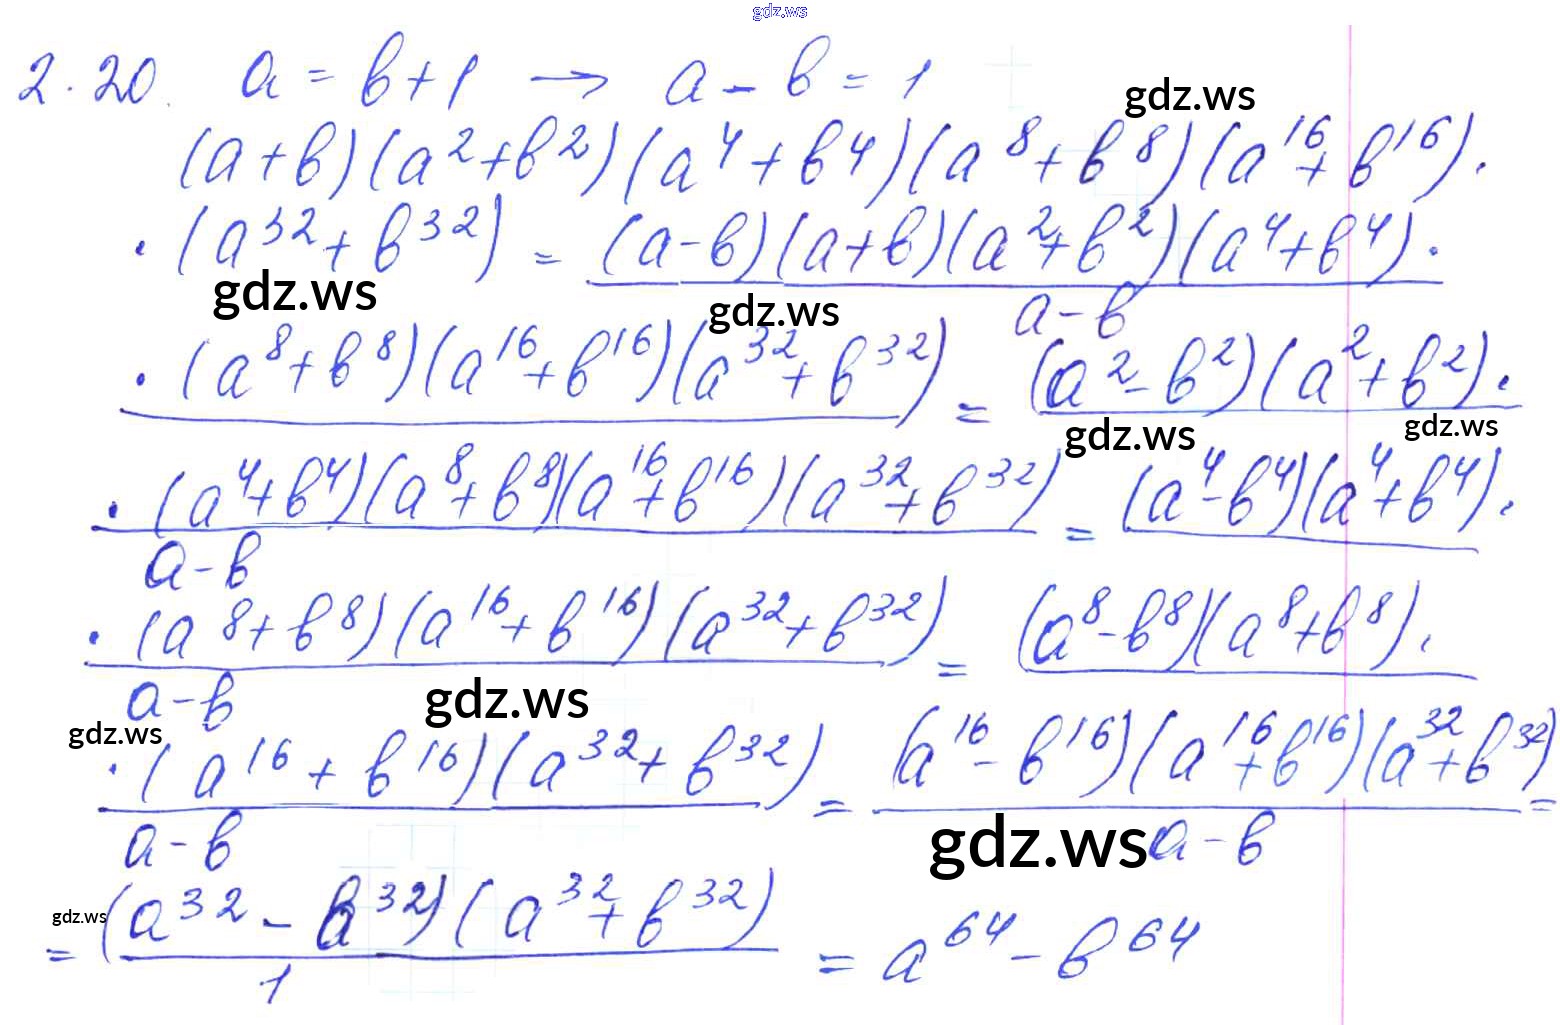 gdz.ws
2.20. a = b + 1 → a - b = 1
gdz.ws
(a + b)(a² + b²)(a⁴ + b⁴)(a⁸ + b⁸)(a¹⁶ + b¹⁶) ·
· (a³² + b³²) = (a - b)(a + b)(a² + b²)(a⁴ + b⁴) ·
gdz.ws gdz.ws a - b
· (a⁸ + b⁸)(a¹⁶ + b¹⁶)(a³² + b³²) = (a² - b²)(a² + b²) ·
gdz.ws gdz.ws
· (a⁴ + b⁴)(a⁸ + b⁸)(a¹⁶ + b¹⁶)(a³² + b³²) = (a⁴ - b⁴)(a⁴ + b⁴) ·
a - b
· (a⁸ + b⁸)(a¹⁶ + b¹⁶)(a³² + b³²) = (a⁸ - b⁸)(a⁸ + b⁸) ·
a - b gdz.ws
gdz.ws
· (a¹⁶ + b¹⁶)(a³² + b³²) = (a¹⁶ - b¹⁶)(a¹⁶ + b¹⁶)(a³² + b³²) =
a - b gdz.ws a - b
gdz.ws
= (a³² - b³²)(a³² + b³²) = a⁶⁴ - b⁶⁴
1